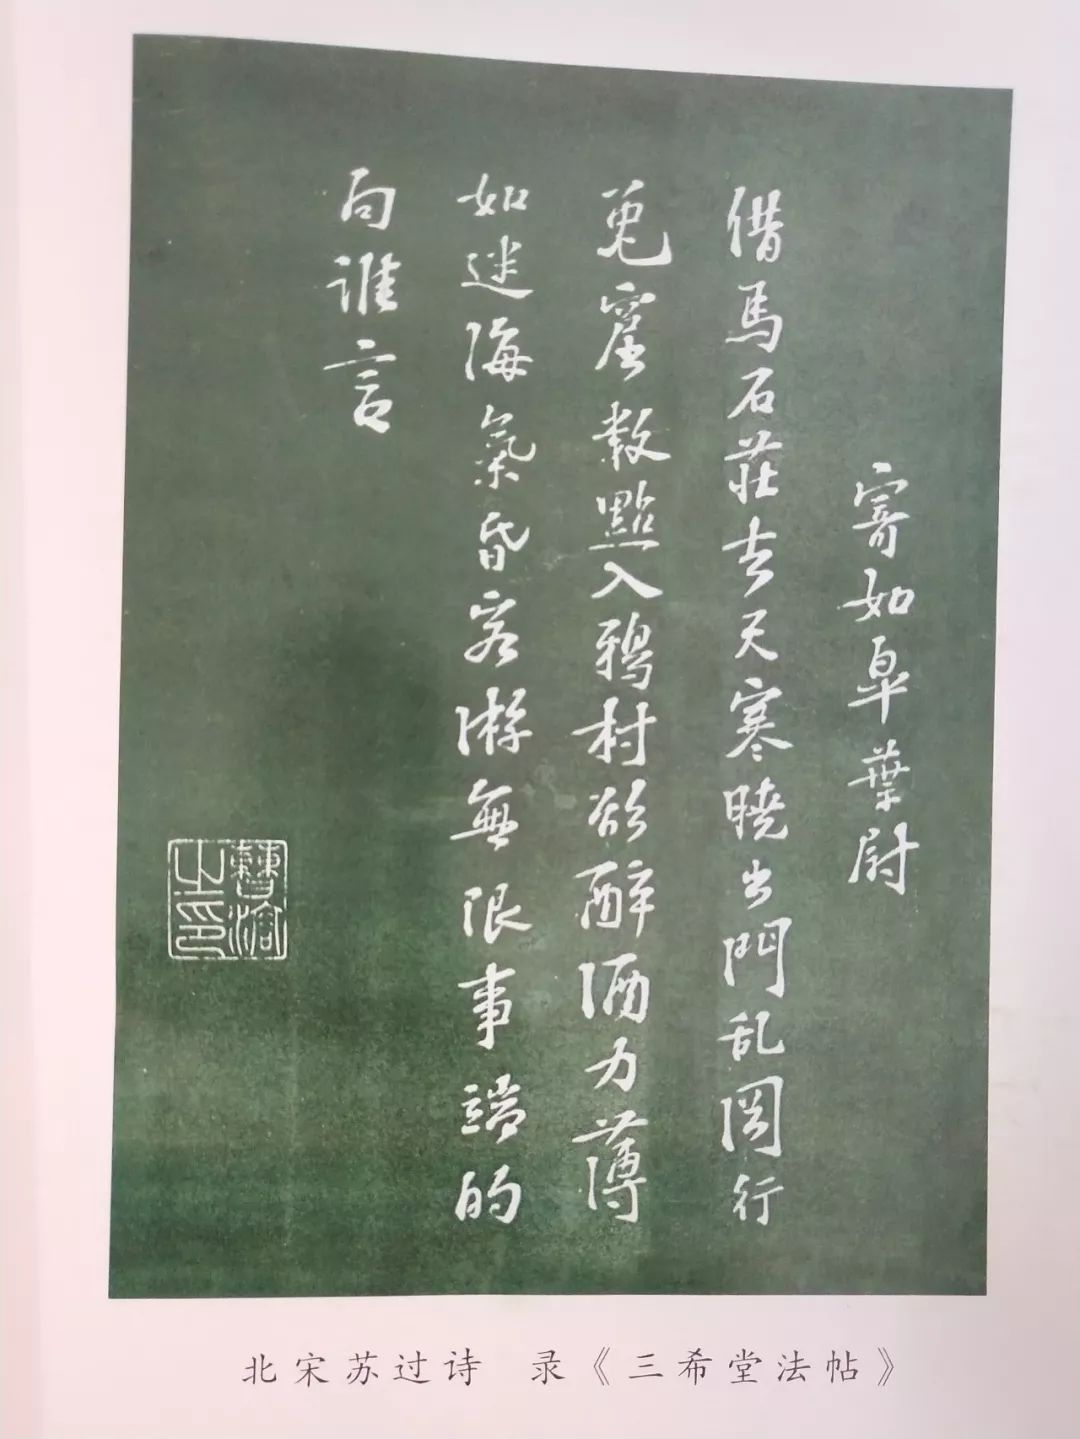 寄如皋葉尉
借馬石莊去天寒曉出門乱岡行
兔窟数點入鴉村欲醉酒力薄
如迷海氣昏客游無限事端的
向誰言
曹溶之印
北宋苏过诗 录《三希堂法帖》